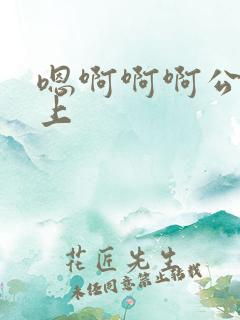 嗯啊啊啊公
上
花匠先生
未经同意禁止转载